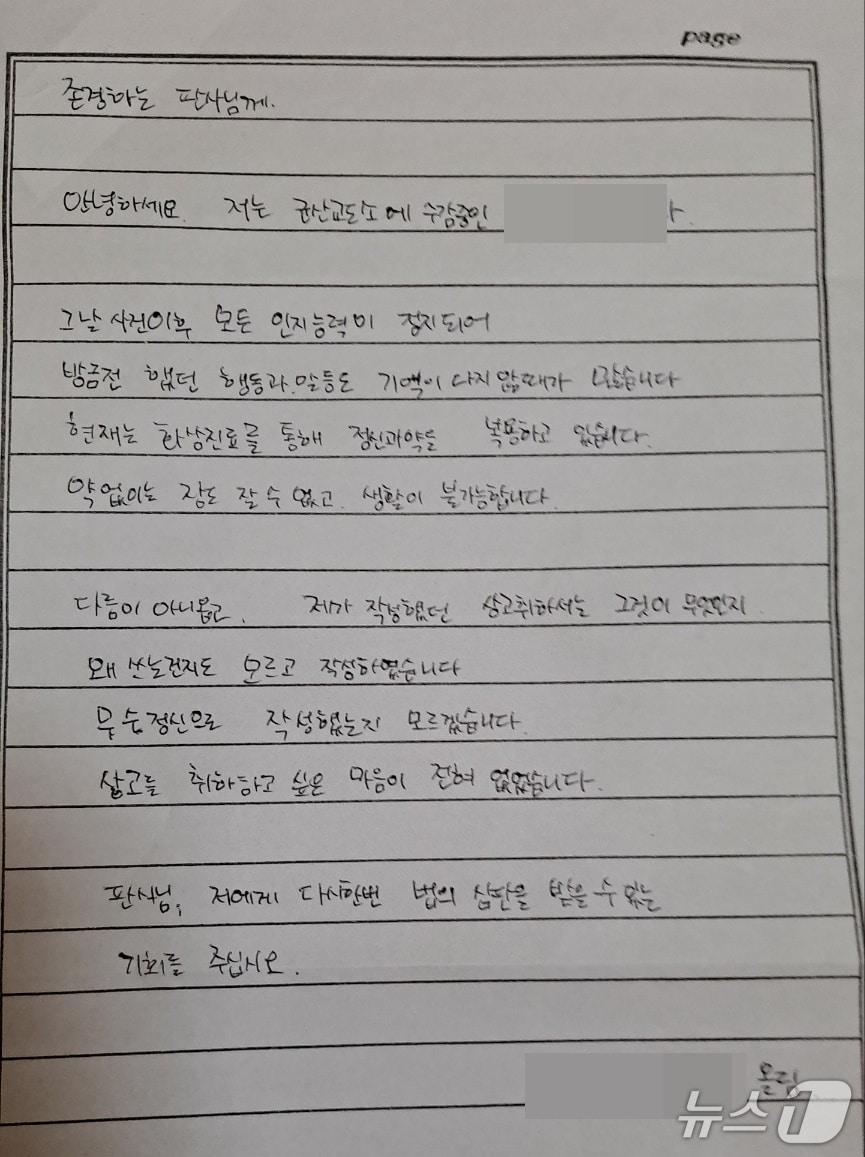 page
존경하는 판사님께.
안녕하세요. 저는 군산교도소에 수감중인 다.
그날 사건이후 모든 인지능력이 정지되어
방금전 했던 행동과.말등도 기액이 다지 않때가 많습니다
현재는 화상진료를 통해 정신과약을 복용하고 있습니다.
약없이는 잠도 잘 수 없고. 생활이 불가능합니다.
다름이 아니옵고, 제가 작성했던 상고취하서는 그것이 무엇인지.
왜 쓰는건지도 모르고 작성하였습니다
무슨정신으로 작성했는지 모르겠습니다.
상고를 취하하고 싶은 마음이 전혀 없었습니다.
판사님, 저에게 다시한번 법의 심판을 받을 수 있는
기회를 주십시오.
올림
뉴스1